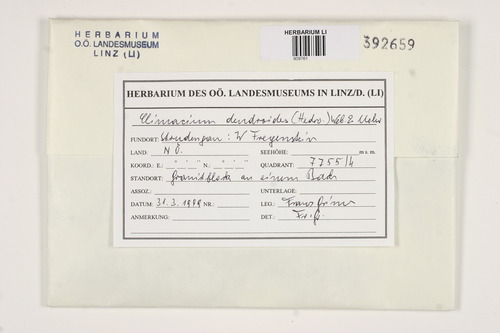 HERBARIUM
O.Ö. LANDESMUSEUM
LINZ (LI)
HERBARIUM LI
392659
HERBARIUM DES OÖ. LANDESMUSEUMS IN LINZ/D. (LI)
Climacium dendroides (Hedw.) Web & Mohr
FUNDORT: Strudengau: W Freyenstein
LAND: NÖ. SEEHÖHE: m s. m.
KOORD.: E.: ° ' " N.: ° ' " QUADRANT: 7755/4
STANDORT: Granitblock an einem Bach
ASSOZ.: UNTERLAGE:
DATUM: 31.3.1999 NR.: LEG.: Franz Grims
ANMERKUNG: DET.: